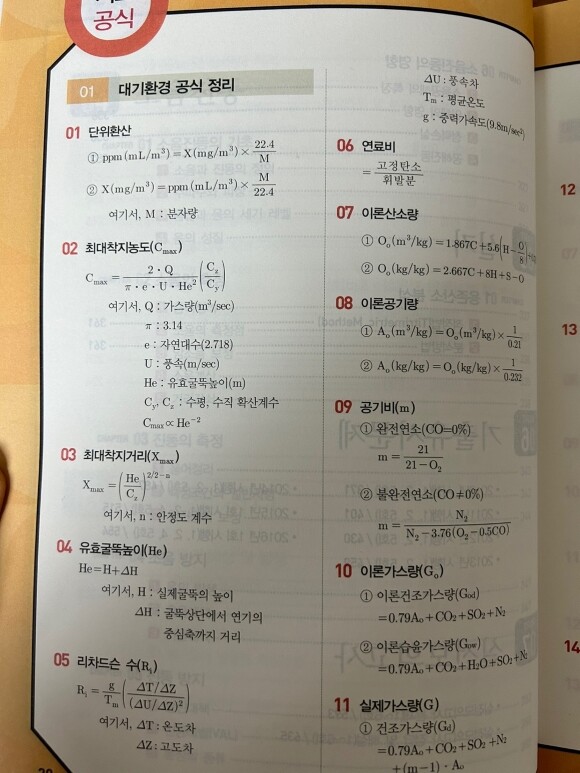 공식
01 대기환경 공식 정리
01 단위환산
① ppm(mL/m³)=X(mg/m³)×22.4/M
② X(mg/m³)=ppm(mL/m³)×M/22.4
여기서, M : 분자량
02 최대착지농도(Cmax)
Cmax=2·Q/(π·e·U·He²)(Cz/Cy)
여기서, Q : 가스량(m³/sec)
π : 3.14
e : 자연대수(2.718)
U : 풍속(m/sec)
He : 유효굴뚝높이(m)
Cy, Cz : 수평, 수직 확산계수
Cmax∝He⁻²
03 최대착지거리(Xmax)
Xmax=(He/Cz)^(2/2-n)
여기서, n : 안정도 계수
04 유효굴뚝높이(He)
He=H+ΔH
여기서, H : 실제굴뚝의 높이
ΔH : 굴뚝상단에서 연기의
중심축까지 거리
05 리차드슨 수(Ri)
Ri=g/Tm((ΔT/ΔZ)/(ΔU/ΔZ)²)
여기서, ΔT : 온도차
ΔZ : 고도차
ΔU : 풍속차
Tm : 평균온도
g : 중력가속도(9.8m/sec²)
06 연료비
=고정탄소/휘발분
07 이론산소량
① Oo(m³/kg)=1.867C+5.6(H-O/8)
② Oo(kg/kg)=2.667C+8H+S-O
08 이론공기량
① Ao(m³/kg)=Oo(m³/kg)×1/0.21
② Ao(kg/kg)=Oo(kg/kg)×1/0.232
09 공기비(m)
① 완전연소(CO=0%)
m=21/(21-O₂)
② 불완전연소(CO≠0%)
m=N₂/(N₂-3.76(O₂-0.5CO))
10 이론가스량(Go)
① 이론건조가스량(God)
=0.79Ao+CO₂+SO₂+N₂
② 이론습윤가스량(Gow)
=0.79Ao+CO₂+H₂O+SO₂+N₂
11 실제가스량(G)
① 건조가스량(Gd)
=0.79Ao+CO₂+SO₂+N₂
+(m-1)·Ao
12
13
14